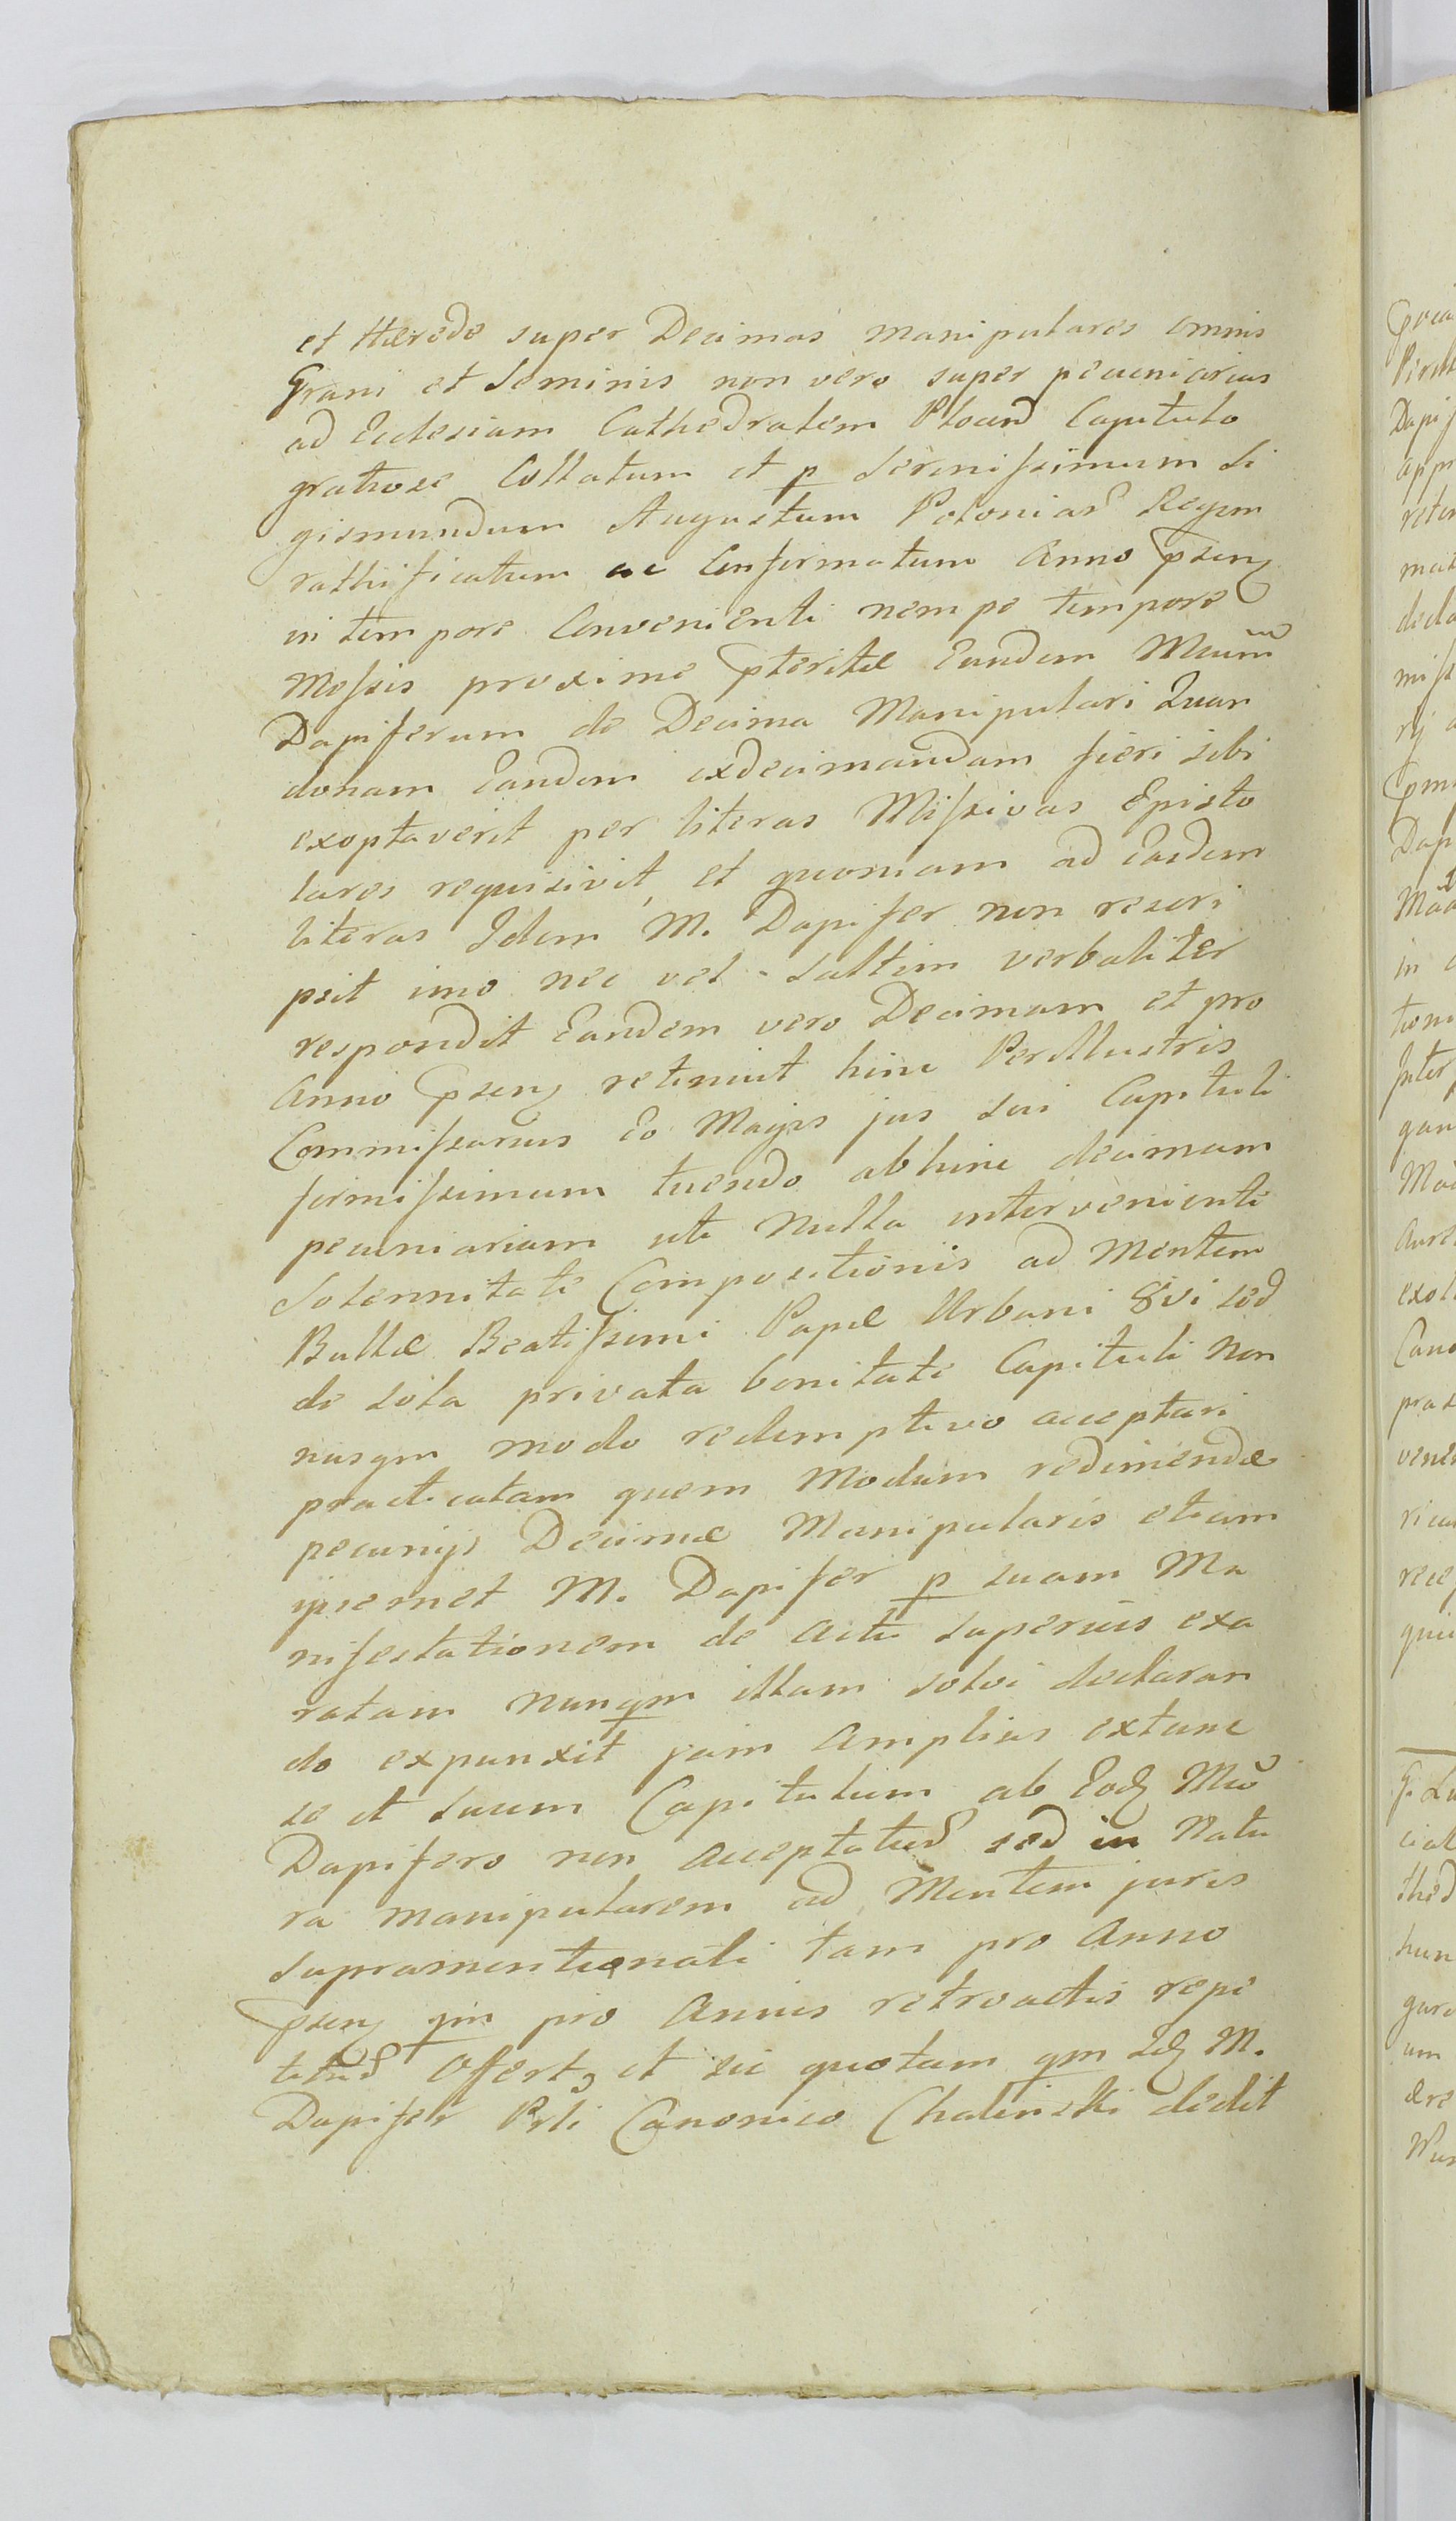 et Hærede super Decimas manipulares omnis
Grani et Seminis non vero super pecuniarias
ad Ecclesiam Cathedralem Plocen Capitulo
gratiose Collatum et p Serenissimum Si
gismundum Augustum Poloniar Regem
rathificatum ac Confirmatum Anno pseng
in tempore Convenienti nempe tempore
Messis proxime pteritæ Eundem Mcum
Dapiferum de Decima Manipulari Quan
donam Eandem exdecimandam fieri sibi
exoptaverit per literas Missivas Episto
lares requisivit, et quoniam ad Easdem
literas Idem M. Dapifer non rescri
psit imo nec vel saltim verbaliter
respondit Eandem vero Decimam et pro
Anno pseng retinuit hinc Perillustris
Commissarius Eo Magis jus sui Capituli
firmissimum tuendo abhinc decimam
pecuniariam uti Nulla intervenienti
Solennitate Compositionis ad Mentem
Bullæ Beatissimi Papæ Urbani 8vi sed
de sola privata bonitate Capituli Non
nusqm modo redemptivo acceptari
practicatam quem Modum redimendæ
pecunijs Decimæ Manipularis etiam
ipsemet M. Dapifer p suam Ma
nifestationem de Actu superius exa
ratam Nunqm illam solvi declaran
do expunxit jam Amplius extunc
se et suum Capitulum ab Eodg Mco
Dapifero non Acceptatud sed in Natu
ra manipularem ad Mentem juris
supramentionati tam pro Anno
pseng qm pro Annis retroactis repe
titud Offert, et sic quotam qm Idg M.
Dapifer Prli Canonico Chalinski dedit